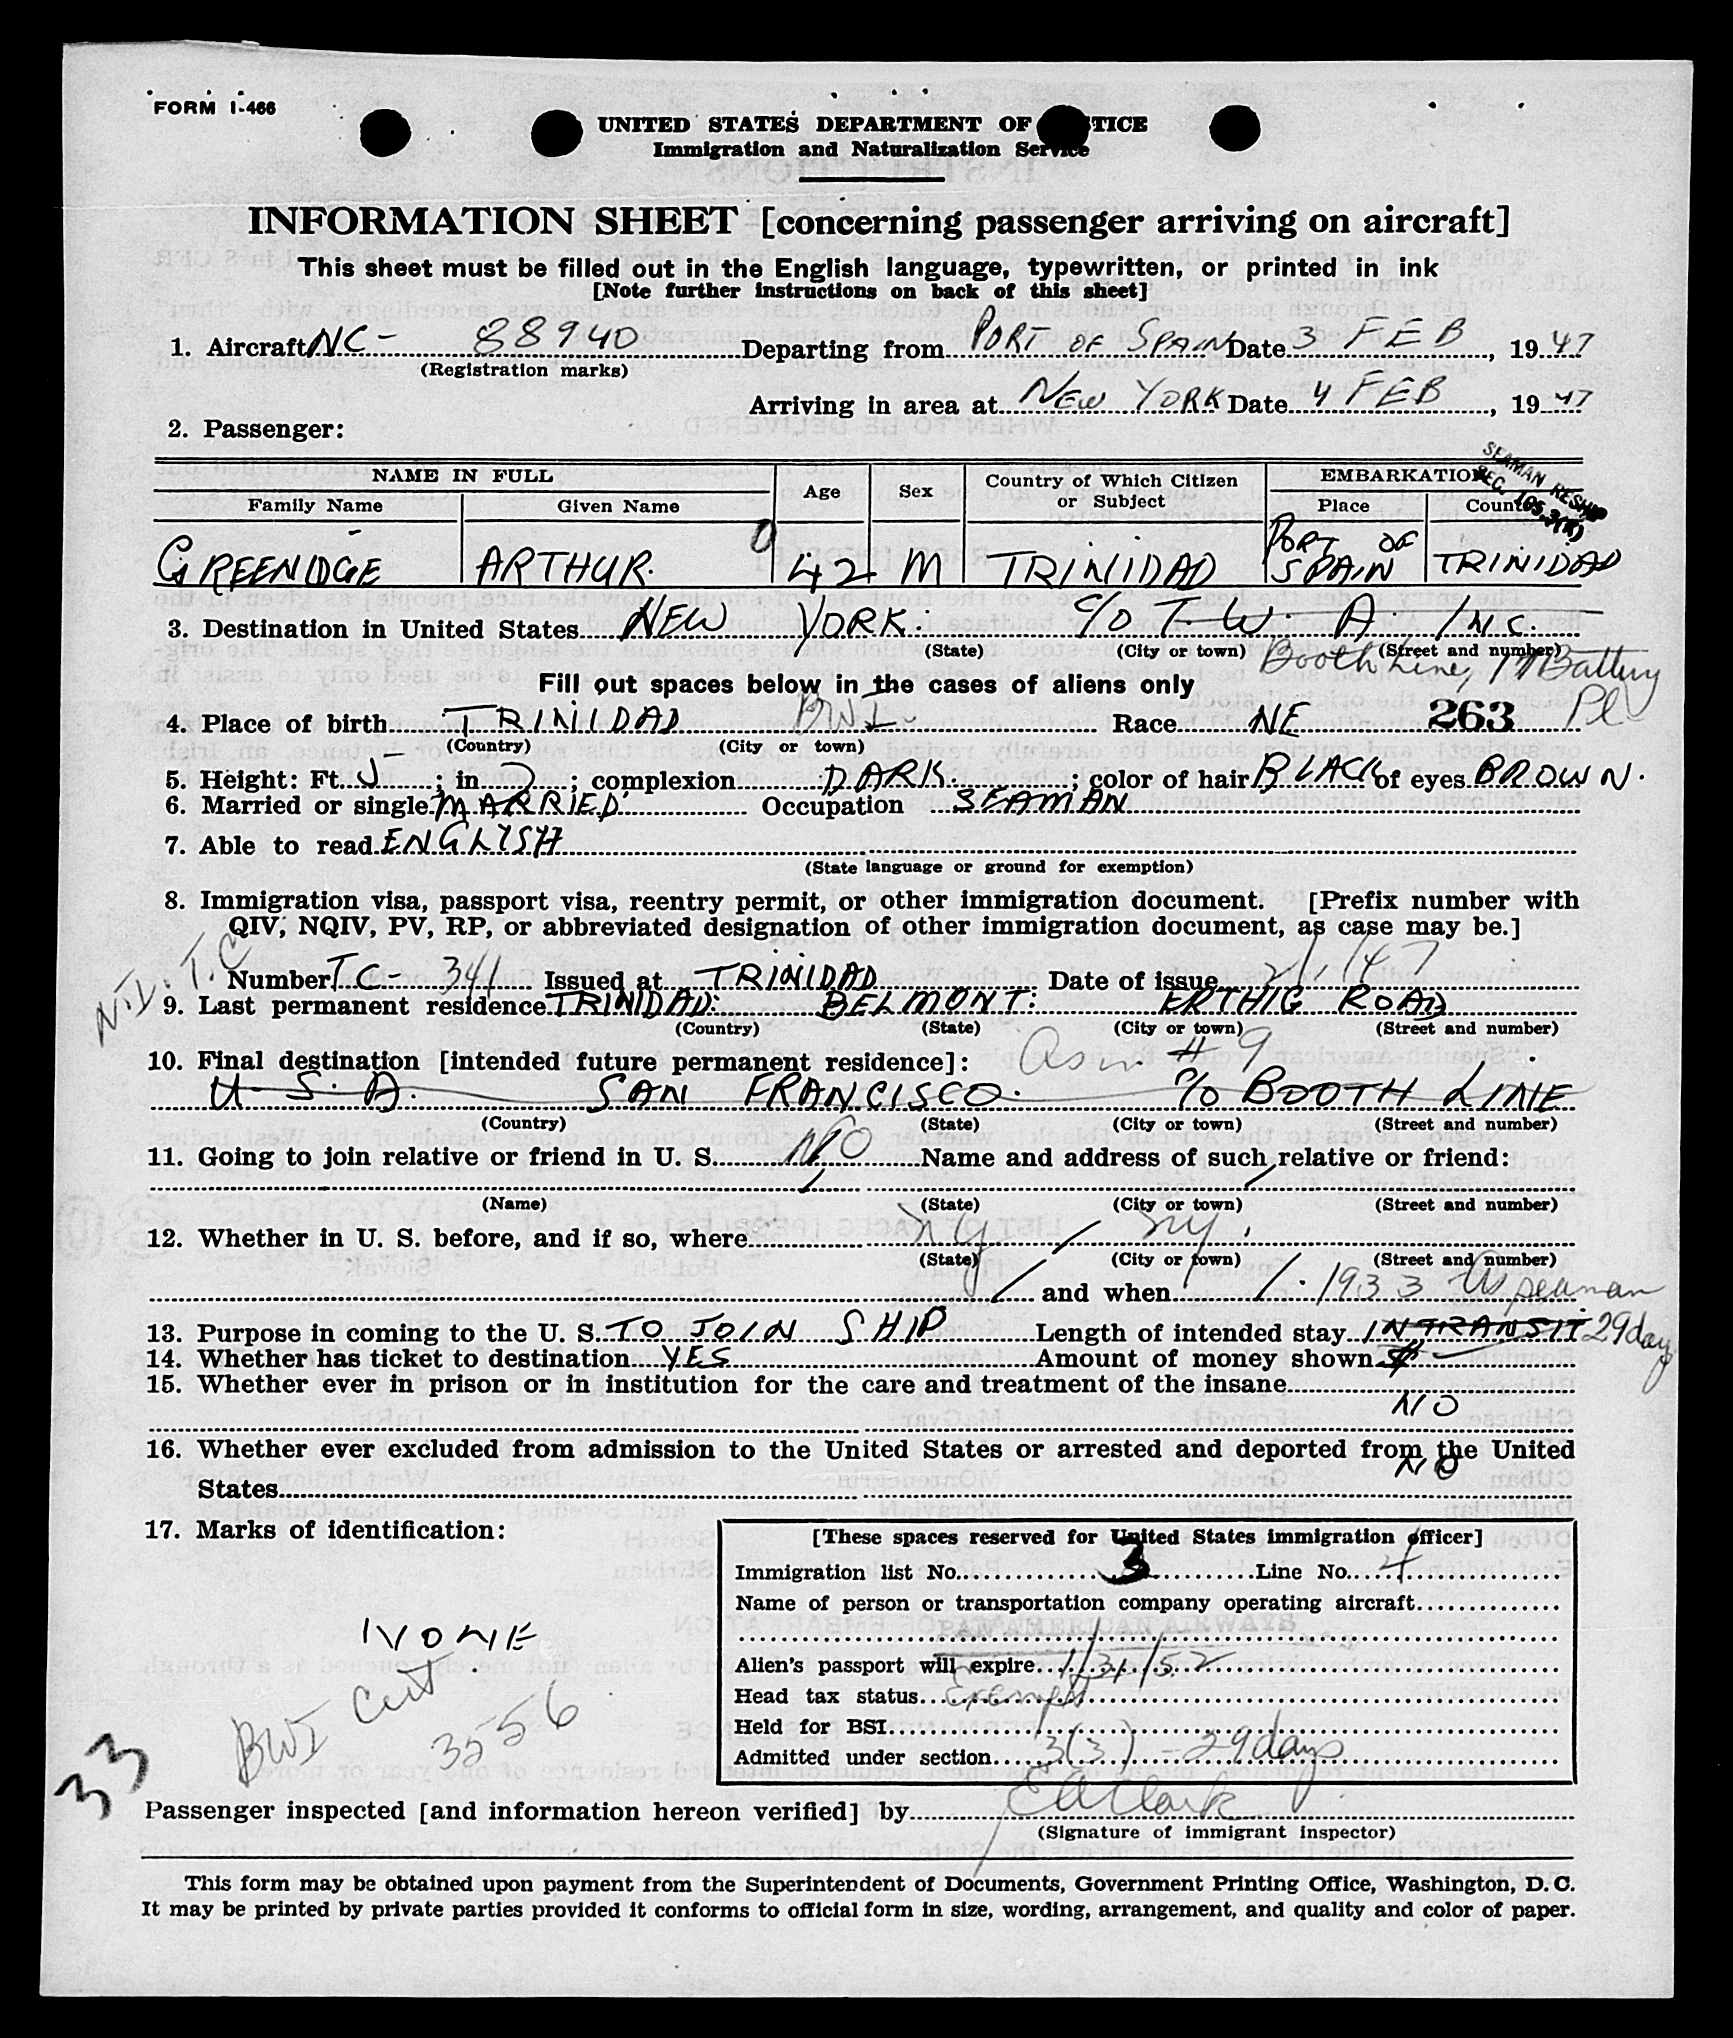 FORM I-466
UNITED STATES DEPARTMENT OF TICE
Immigration and Naturalization Service
INFORMATION SHEET [concerning passenger arriving on aircraft]
This sheet must be filled out in the English language, typewritten, or printed in ink
[Note further instructions on back of this sheet]
1. Aircraft NC- 88940 Departing from PORT OF SPAIN Date 3 FEB, 1947
(Registration marks)
Arriving in area at NEW YORK Date 4 FEB, 1947
2. Passenger:
SEAMAN RESHIP
NAME IN FULL Age Sex Country of Which Citizen or Subject EMBARKATION
Family Name Given Name Place Count
GREENIDGE ARTHUR. 0 42 M TRINIDAD PORT OF SPAIN TRINIDAD
3. Destination in United States NEW YORK. C/O T. W. A. INC.
(State) (City or town) (Street and number)
Booth Line, 17 Battery Pl
Fill out spaces below in the cases of aliens only
4. Place of birth TRINIDAD BWI Race NE 263
(Country) (City or town)
5. Height: Ft. 5; in. 7; complexion DARK.; color of hair BLACK of eyes BROWN.
6. Married or single MARRIED Occupation SEAMAN
7. Able to read ENGLISH
(State language or ground for exemption)
8. Immigration visa, passport visa, reentry permit, or other immigration document. [Prefix number with
QIV, NQIV, PV, RP, or abbreviated designation of other immigration document, as case may be.]
N.I. T.C
Number TC- 341 Issued at TRINIDAD Date of issue
9. Last permanent residence TRINIDAD: BELMONT: ERTHIG ROAD
(Country) (State) (City or town) (Street and number)
10. Final destination [intended future permanent residence]: As in #9
U. S. A. SAN FRANCISCO. C/O BOOTH LINE
(Country) (State) (City or town) (Street and number)
11. Going to join relative or friend in U. S. NO Name and address of such relative or friend:
(Name) (State) (City or town) (Street and number)
12. Whether in U. S. before, and if so, where NY NY.
(State) (City or town) (Street and number)
and when 1933 As seaman
13. Purpose in coming to the U. S. TO JOIN SHIP Length of intended stay INTRANSIT 29 days
14. Whether has ticket to destination YES Amount of money shown $ -
15. Whether ever in prison or in institution for the care and treatment of the insane
NO
16. Whether ever excluded from admission to the United States or arrested and deported from the United
States NO
17. Marks of identification:
NONE
BWI Cert.
3556
33
[These spaces reserved for United States immigration officer]
Immigration list No. 3 Line No. 4
Name of person or transportation company operating aircraft
PAN AMERICAN AIRWAYS
Alien's passport will expire 1/31/52
Head tax status Exempt
Held for BSI
Admitted under section 3(3) - 29 days
Passenger inspected [and information hereon verified] by E A Clark
(Signature of immigrant inspector)
This form may be obtained upon payment from the Superintendent of Documents, Government Printing Office, Washington, D. C.
It may be printed by private parties provided it conforms to official form in size, wording, arrangement, and quality and color of paper.